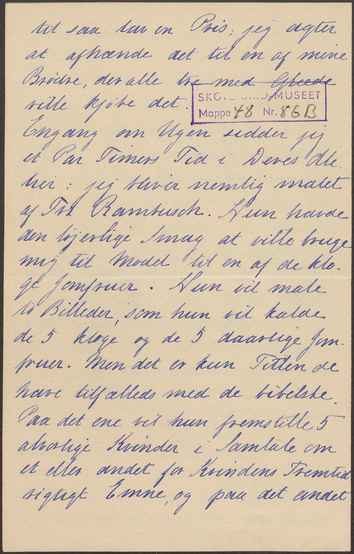 til saa lav en Pris; jeg agter
at afhænde det til en af mine
Brødre, der alle tre med Glæde
ville kjøbe det.
SKOVGAARD MUSEET
Mappe 48 Nr. 86B
Engang om Ugen sidder jeg
et Par Timers Tid i Deres Ate
lier; jeg bliver nemlig malet
af Frk Rambusch. Hun havde
den løjerlige Smag at ville bruge
mig til Model til en af de klo-
ge Jomfruer. Hun vil male
to Billeder, som hun vil kalde
de 5 kloge og de 5 daarlige Jom
fruer. Men det er kun Titlen de
have tilfælleds med de bibelske.
Paa det ene vil hun fremstille 5
alvorlige Kvinder i Samtale om
et eller andet for Kvindens Fremtid
vigtigt Emne, og paa det andet